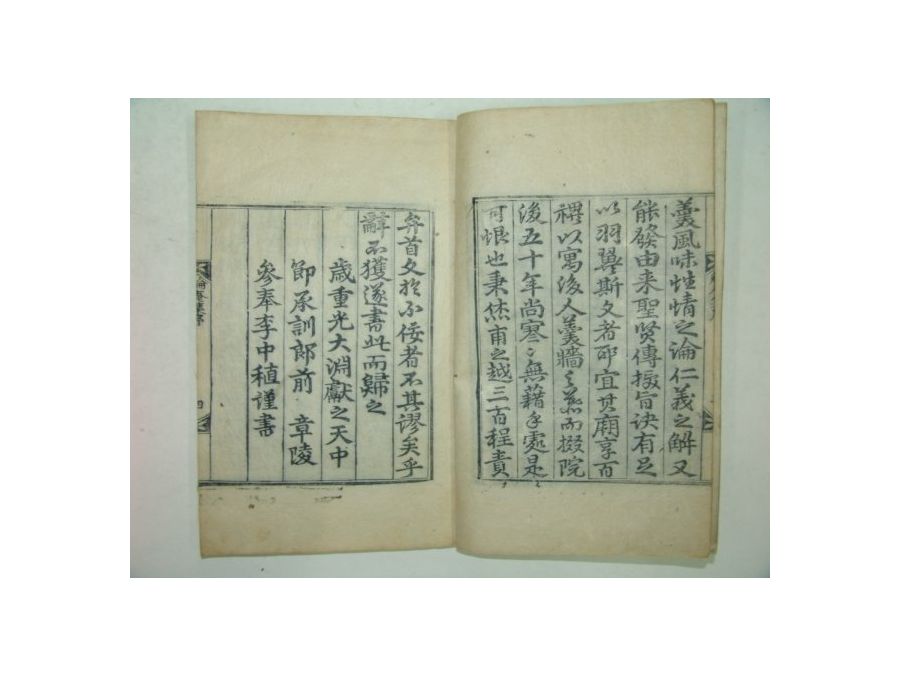 羹風味性情之論仁義之解又
能發由来聖贤傳授旨诀有足
以羽翼斯文者耶宜其廟享百
禩以寓後人羹墻之慕而掇院
後五十年尚寒〻無藉手處是
可恨也秉烋甫之越三百程責
弁首文於不佞者不其謬矣乎
辭不獲遂書此而歸之
歲重光大淵獻之天中
節承訓郎前 章陵
參奉李中稙謹書
四